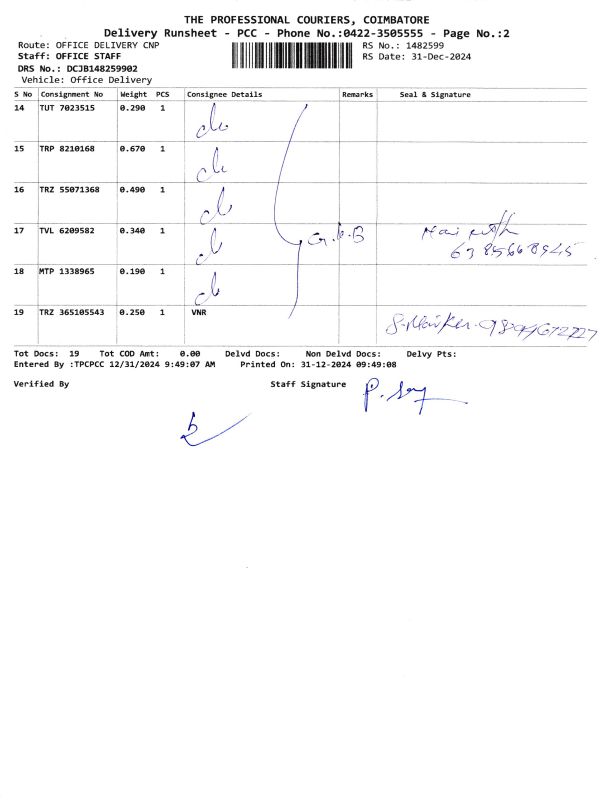 THE PROFESSIONAL COURIERS, COIMBATORE
Delivery Runsheet - PCC - Phone No.:0422-3505555 - Page No.:2
Route: OFFICE DELIVERY CNP RS No.: 1482599
Staff: OFFICE STAFF RS Date: 31-Dec-2024
DRS No.: DCJB148259902
Vehicle: Office Delivery
S No Consignment No Weight PCS Consignee Details Remarks Seal & Signature
14 TUT 7023515 0.290 1
15 TRP 8210168 0.670 1
16 TRZ 55071368 0.490 1
17 TVL 6209582 0.340 1
18 MTP 1338965 0.190 1
19 TRZ 365105543 0.250 1 VNR
Tot Docs: 19 Tot COD Amt: 0.00 Delvd Docs: Non Delvd Docs: Delvy Pts:
Entered By :TPCPCC 12/31/2024 9:49:07 AM Printed On: 31-12-2024 09:49:08
Verified By Staff Signature